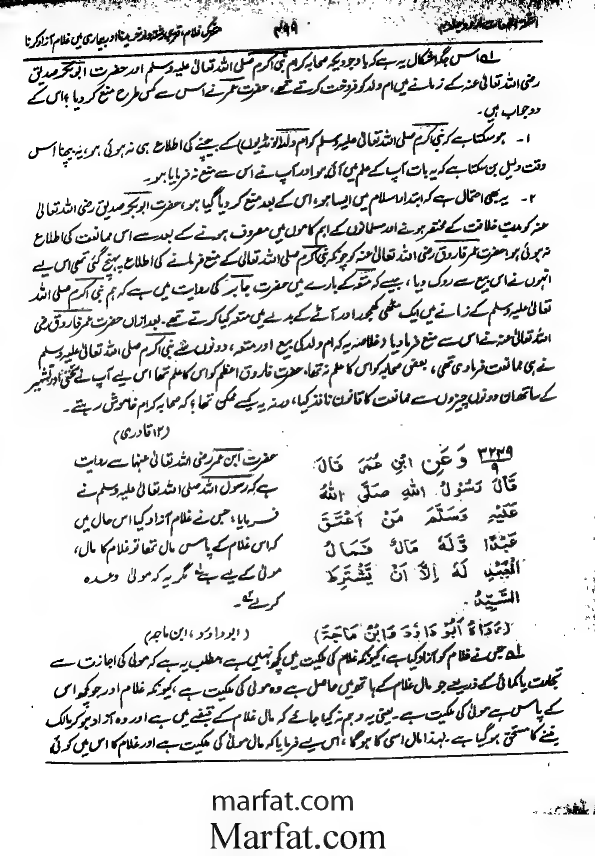 ۴۹۹
۱؎ اس جگہ اشکال یہ ہے کہ باوجودیکہ صحابہ کرام نبی اکرم صلی اللہ تعالیٰ علیہ وسلم اور حضرت ابوبکر صدیق
رضی اللہ تعالیٰ عنہ کے زمانے میں ام ولد کو فروخت کرتے تھے، حضرت عمر نے اس سے کس طرح منع کر دیا؟ اس کے
دو جواب ہیں۔
۱۔ ہو سکتا ہے کہ نبی اکرم صلی اللہ تعالیٰ علیہ وسلم کو ام ولد (لونڈیوں) کے بیچنے کی اطلاع ہی نہ ہوئی ہو، یہ بیچنا اس
وقت دلیل بن سکتا ہے کہ یہ بات آپ کے علم میں آئی ہو اور آپ نے اس سے منع نہ فرمایا ہو۔
۲۔ یہ بھی احتمال ہے کہ ابتداء اسلام میں ایسا ہو، اس کے بعد منع کر دیا گیا ہو، حضرت ابوبکر صدیق رضی اللہ تعالیٰ
عنہ کو مدتِ خلافت کے مختصر ہونے اور مسلمانوں کے اہم کاموں میں مصروف ہونے کے بعد سے اس ممانعت کی اطلاع
نہ ہوئی ہو، حضرت عمر فاروق رضی اللہ تعالیٰ عنہ کو چونکہ نبی اکرم صلی اللہ تعالیٰ کے منع فرمانے کی اطلاع پہنچ گئی تھی اس لیے
انہوں نے اس بیع سے روک دیا، جیسے کہ متعہ کے بارے میں حضرت جابر کی روایت میں ہے کہ ہم نبی اکرم صلی اللہ
تعالیٰ علیہ وسلم کے زمانے میں ایک مٹھی کھجور اور آٹے کے بدلے میں متعہ کیا کرتے تھے۔ بعد ازاں حضرت عمر فاروق رضی
اللہ تعالیٰ عنہ نے اس سے منع فرما دیا (خلاصہ یہ کہ ام ولد کی بیع اور متعہ، دونوں سے نبی اکرم صلی اللہ تعالیٰ علیہ وسلم
نے ہی ممانعت فرما دی تھی، بعض صحابہ کو اس کا علم نہ تھا، حضرت فاروق اعظم کو اس کا علم تھا اس لیے آپ نے سختی اور تشہیر
کے ساتھ ان دونوں چیزوں سے ممانعت کا قانون نافذ کیا، ورنہ یہ کیسے ممکن تھا؟ کہ صحابہ کرام خاموش رہتے۔
(۱۲ قادری)
۳۲۴۹/۹ وَعَنِ ابْنِ عُمَرَ قَالَ
قَالَ رَسُوْلُ اللهِ صَلَّى اللهُ
عَلَيْهِ وَسَلَّمَ مَنْ اَعْتَقَ
عَبْدًا وَّلَهٗ مَالٌ فَمَالُ
الْعَبْدِ لَهٗ اِلَّا اَنْ يَّشْتَرِطَ
السَّيِّدُ۔
(رَوَاهُ اَبُوْ دَاوٗدَ وَابْنُ مَاجَةَ)
حضرت ابن عمر رضی اللہ تعالیٰ عنہا سے روایت
ہے کہ رسول اللہ صلی اللہ تعالیٰ علیہ وسلم نے
فرمایا: جس نے غلام آزاد کیا اس حال میں
کہ اس غلام کے پاس مال تھا تو غلام کا مال،
مولیٰ کے لیے ہے۱؎ مگر یہ کہ مولیٰ وعدہ
کرے۲؎۔
(ابوداود، ابن ماجہ)
۱؎ جس نے غلام کو آزاد کیا ہے، کیونکہ غلام کی ملکیت میں کچھ نہیں ہے، مطلب یہ ہے کہ مولیٰ کی اجازت سے
تجارت یا کمائی کے ذریعے جو مال غلام کے ہاتھ میں حاصل ہے وہ مولیٰ کی ملکیت ہے، کیونکہ غلام اور جو کچھ اس
کے پاس ہے مولیٰ کی ملکیت ہے۔ یعنی یہ وہم نہ کیا جائے کہ مال غلام کے قبضے میں ہے اور وہ آزاد ہو کر مالک
بننے کا مستحق ہو گیا ہے۔ لہٰذا مال اسی کا ہو گا، اس لیے فرمایا کہ مال مولیٰ کی ملکیت ہے اور غلام کا اس میں کوئی
marfat.com
Marfat.com